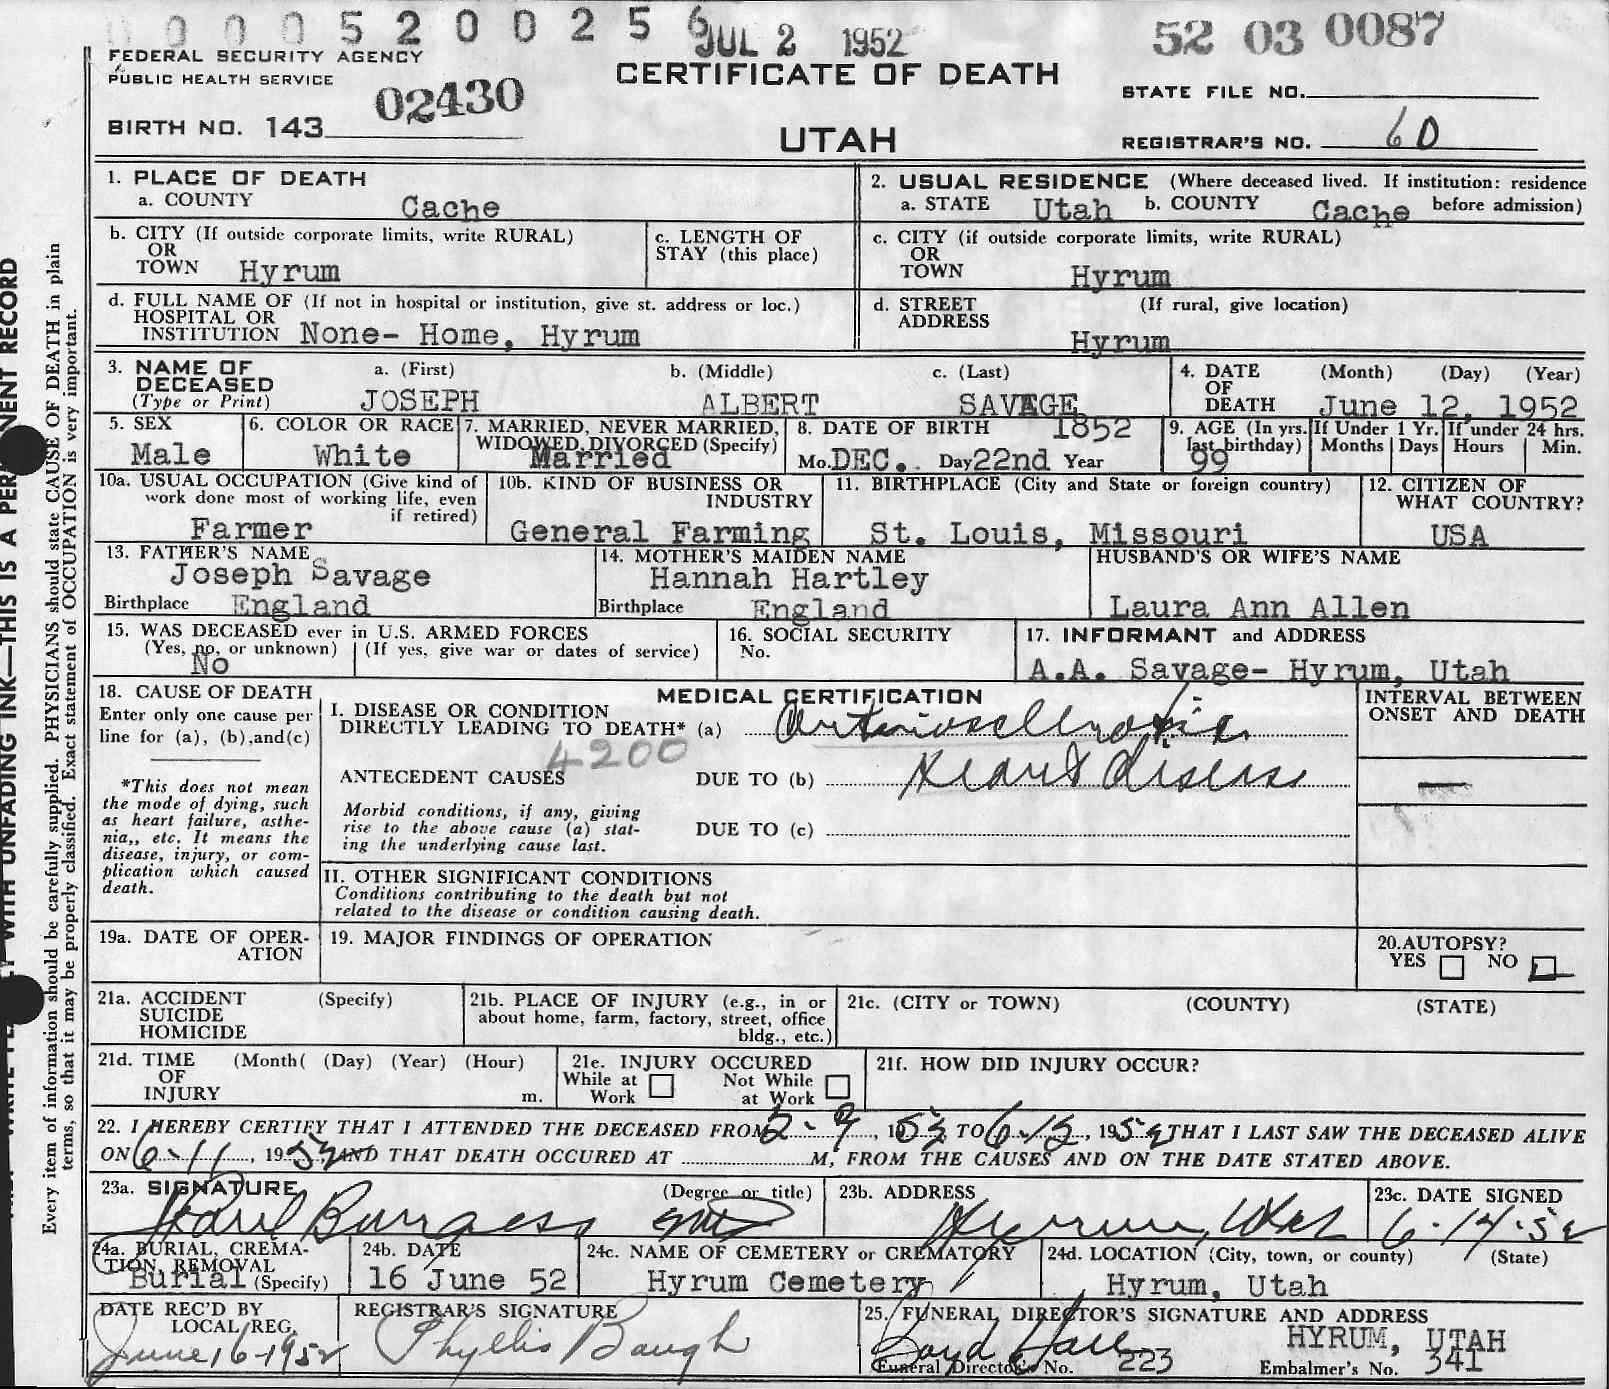 0 0 0 5 2 0 0 2 5 6
JUL 2 1952
52 03 0087
FEDERAL SECURITY AGENCY
PUBLIC HEALTH SERVICE
02430
CERTIFICATE OF DEATH
STATE FILE NO.
BIRTH NO. 143
UTAH
REGISTRAR'S NO. 60
1. PLACE OF DEATH
a. COUNTY Cache
2. USUAL RESIDENCE (Where deceased lived. If institution: residence
a. STATE Utah b. COUNTY Cache before admission)
b. CITY (If outside corporate limits, write RURAL)
OR
TOWN Hyrum
c. LENGTH OF
STAY (this place)
c. CITY (if outside corporate limits, write RURAL)
OR
TOWN Hyrum
d. FULL NAME OF (If not in hospital or institution, give st. address or loc.)
HOSPITAL OR
INSTITUTION None- Home, Hyrum
d. STREET (If rural, give location)
ADDRESS
Hyrum
3. NAME OF a. (First) b. (Middle) c. (Last)
DECEASED
(Type or Print) JOSEPH ALBERT SAVAGE
4. DATE (Month) (Day) (Year)
OF
DEATH June 12, 1952
5. SEX
Male
6. COLOR OR RACE
White
7. MARRIED, NEVER MARRIED,
WIDOWED, DIVORCED (Specify)
Married
8. DATE OF BIRTH 1852
Mo. DEC. Day 22nd Year
9. AGE (In yrs.
last birthday)
99
If Under 1 Yr.
Months Days
If under 24 hrs.
Hours Min.
10a. USUAL OCCUPATION (Give kind of
work done most of working life, even
if retired)
Farmer
10b. KIND OF BUSINESS OR
INDUSTRY
General Farming
11. BIRTHPLACE (City and State or foreign country)
St. Louis, Missouri
12. CITIZEN OF
WHAT COUNTRY?
USA
13. FATHER'S NAME
Joseph Savage
Birthplace England
14. MOTHER'S MAIDEN NAME
Hannah Hartley
Birthplace England
HUSBAND'S OR WIFE'S NAME
Laura Ann Allen
15. WAS DECEASED ever in U.S. ARMED FORCES
(Yes, no, or unknown) (If yes, give war or dates of service)
No
16. SOCIAL SECURITY
No.
17. INFORMANT and ADDRESS
A.A. Savage- Hyrum, Utah
18. CAUSE OF DEATH
Enter only one cause per
line for (a), (b), and (c)
*This does not mean
the mode of dying, such
as heart failure, asthe-
nia,, etc. It means the
disease, injury, or com-
plication which caused
death.
MEDICAL CERTIFICATION
I. DISEASE OR CONDITION
DIRECTLY LEADING TO DEATH* (a) Arteriosclerotic
4200
ANTECEDENT CAUSES DUE TO (b) Heart disease
Morbid conditions, if any, giving
rise to the above cause (a) stat-
ing the underlying cause last.
DUE TO (c)
II. OTHER SIGNIFICANT CONDITIONS
Conditions contributing to the death but not
related to the disease or condition causing death.
INTERVAL BETWEEN
ONSET AND DEATH
19a. DATE OF OPER-
ATION
19. MAJOR FINDINGS OF OPERATION
20. AUTOPSY?
YES NO
21a. ACCIDENT (Specify)
SUICIDE
HOMICIDE
21b. PLACE OF INJURY (e.g., in or
about home, farm, factory, street, office
bldg., etc.)
21c. (CITY or TOWN) (COUNTY) (STATE)
21d. TIME (Month( (Day) (Year) (Hour)
OF
INJURY m.
21e. INJURY OCCURED
While at Work
Not While at Work
21f. HOW DID INJURY OCCUR?
22. I HEREBY CERTIFY THAT I ATTENDED THE DECEASED FROM 2-9, 1952, TO 6-12, 1952 THAT I LAST SAW THE DECEASED ALIVE
ON 6-11, 1952 AND THAT DEATH OCCURED AT M, FROM THE CAUSES AND ON THE DATE STATED ABOVE.
23a. SIGNATURE (Degree or title)
Burgess MD
23b. ADDRESS
Hyrum, Utah
23c. DATE SIGNED
6-14-52
24a. BURIAL, CREMA-
TION, REMOVAL
Burial (Specify)
24b. DATE
16 June 52
24c. NAME OF CEMETERY or CREMATORY
Hyrum Cemetery
24d. LOCATION (City, town, or county) (State)
Hyrum, Utah
DATE REC'D BY
LOCAL REG.
June 16-1952
REGISTRAR'S SIGNATURE
Phyllis Baugh
25. FUNERAL DIRECTOR'S SIGNATURE AND ADDRESS
Boyd Hall HYRUM, UTAH
Funeral Director's No. 223 Embalmer's No. 341
Every item of information should be carefully supplied. PHYSICIANS should state CAUSE OF DEATH in plain
terms, so that it may be properly classified. Exact statement of OCCUPATION is very important.
WITH UNFADING INK—THIS IS A PERMANENT RECORD